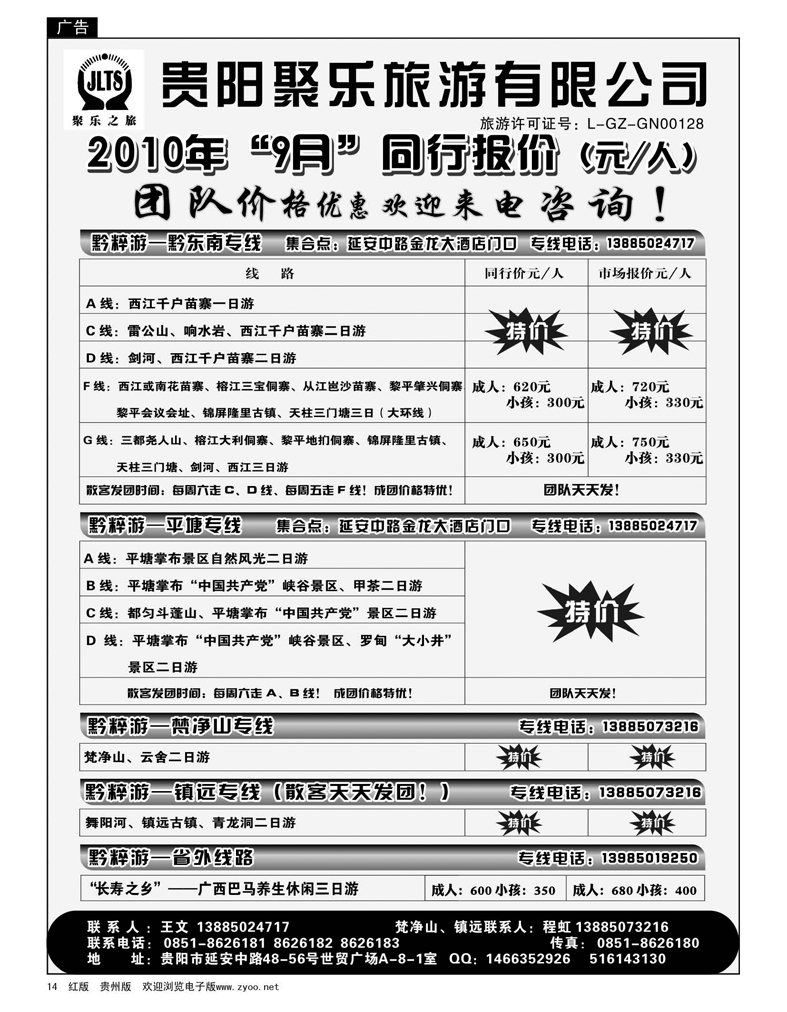 广告
JLTS
聚乐之旅
贵阳聚乐旅游有限公司
旅游许可证号：L-GZ-GN00128
2010年“9月”同行报价（元/人）
团队价格优惠欢迎来电咨询！
黔粹游—黔东南专线 集合点：延安中路金龙大酒店门口 专线电话：13885024717
线 路 同行价元/人 市场报价元/人
A 线：西江千户苗寨一日游
C 线：雷公山、响水岩、西江千户苗寨二日游 特价 特价
D 线：剑河、西江千户苗寨二日游
F 线：西江或南花苗寨、榕江三宝侗寨、从江岜沙苗寨、黎平肇兴侗寨 成人：620元 成人：720元
黎平会议会址、锦屏隆里古镇、天柱三门塘三日（大环线） 小孩：300元 小孩：330元
G 线：三都尧人山、榕江大利侗寨、黎平地扪侗寨、锦屏隆里古镇、 成人：650元 成人：750元
天柱三门塘、剑河、西江三日游 小孩：300元 小孩：330元
散客发团时间：每周六走 C、D 线、每周五走 F 线！成团价格特优！ 团队天天发！
黔粹游—平塘专线 集合点：延安中路金龙大酒店门口 专线电话：13885024717
A 线：平塘掌布景区自然风光二日游
B 线：平塘掌布“中国共产党”峡谷景区、甲茶二日游
C 线：都匀斗蓬山、平塘掌布“中国共产党”景区二日游 特价
D 线：平塘掌布“中国共产党”峡谷景区、罗甸“大小井”
景区二日游
散客发团时间：每周六走 A、B 线！ 成团价格特优！ 团队天天发！
黔粹游—梵净山专线 专线电话：13885073216
梵净山、云舍二日游 特价 特价
黔粹游—镇远专线（散客天天发团！） 专线电话：13885073216
舞阳河、镇远古镇、青龙洞二日游 特价 特价
黔粹游—省外线路 专线电话：13985019250
“长寿之乡”——广西巴马养生休闲三日游 成人：600 小孩：350 成人：680 小孩：400
联 系 人 ：王文 13885024717 梵净山、镇远联系人：程虹 13885073216
联系电话：0851-8626181 8626182 8626183 传真：0851-8626180
地 址：贵阳市延安中路48-56号世贸广场A-8-1室 QQ：1466352926 516143130
14 红版 贵州版 欢迎浏览电子版www.zyoo.net